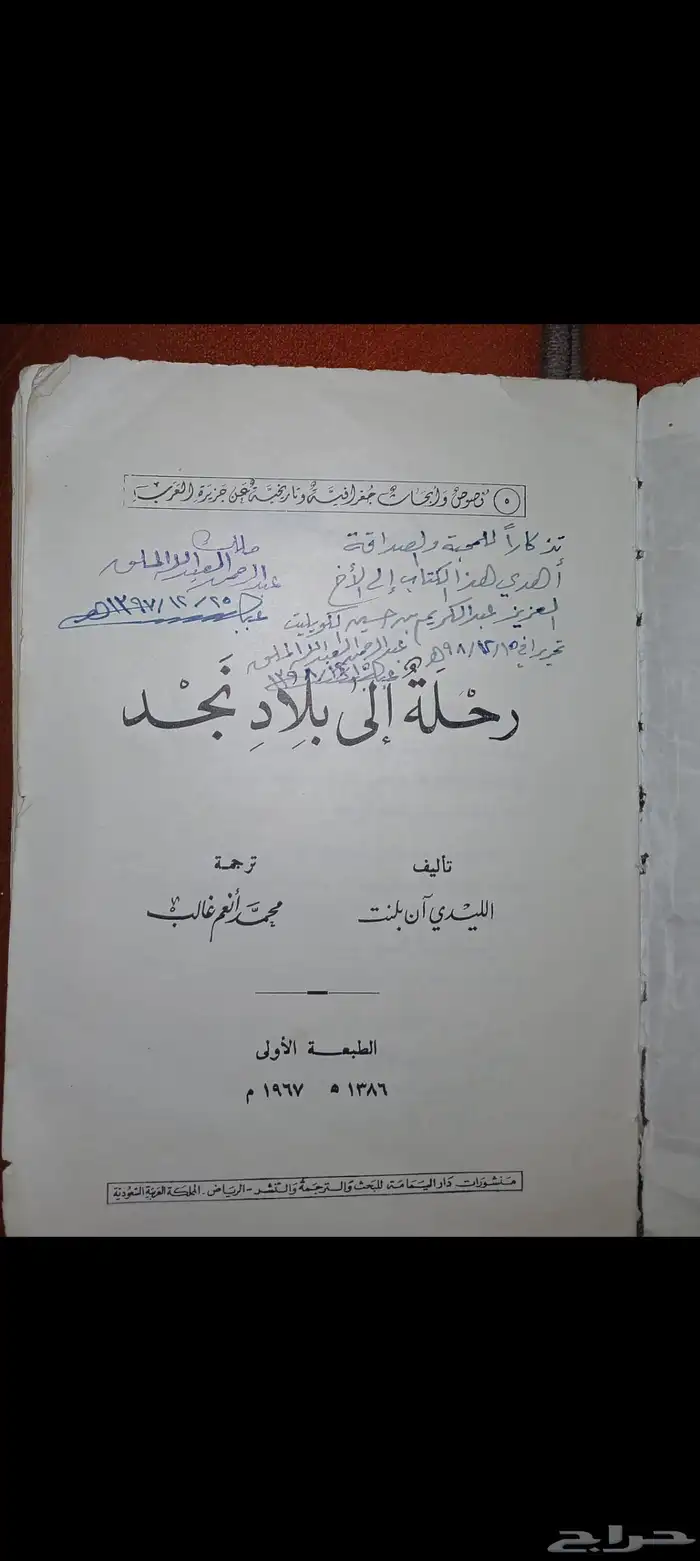 ٥ نصوص وأبحاث جغرافية وتاريخية عن جزيرة العرب
تذكاراً للمحبة والصداقة
أهدي هذا الكتاب إلى الأخ
العزيز عبدالكريم بن حسين
تحريراً في ٩٨/١٢/١٥هـ
عبدالرحمن العبدالله الملحق
مالك
عبدالرحمن العبدالله الملحق
١٣٩٧/١٢/٢٥هـ
رحْلَةٌ إلى بِلادِ نَجْد
تأليف
الليدي آن بلنت
ترجمة
محمد أنعم غالب
الطبعة الأولى
١٣٨٦ ه ١٩٦٧ م
منشورات دار اليمامة للبحث والترجمة والنشر - الرياض - المملكة العربية السعودية
حراج